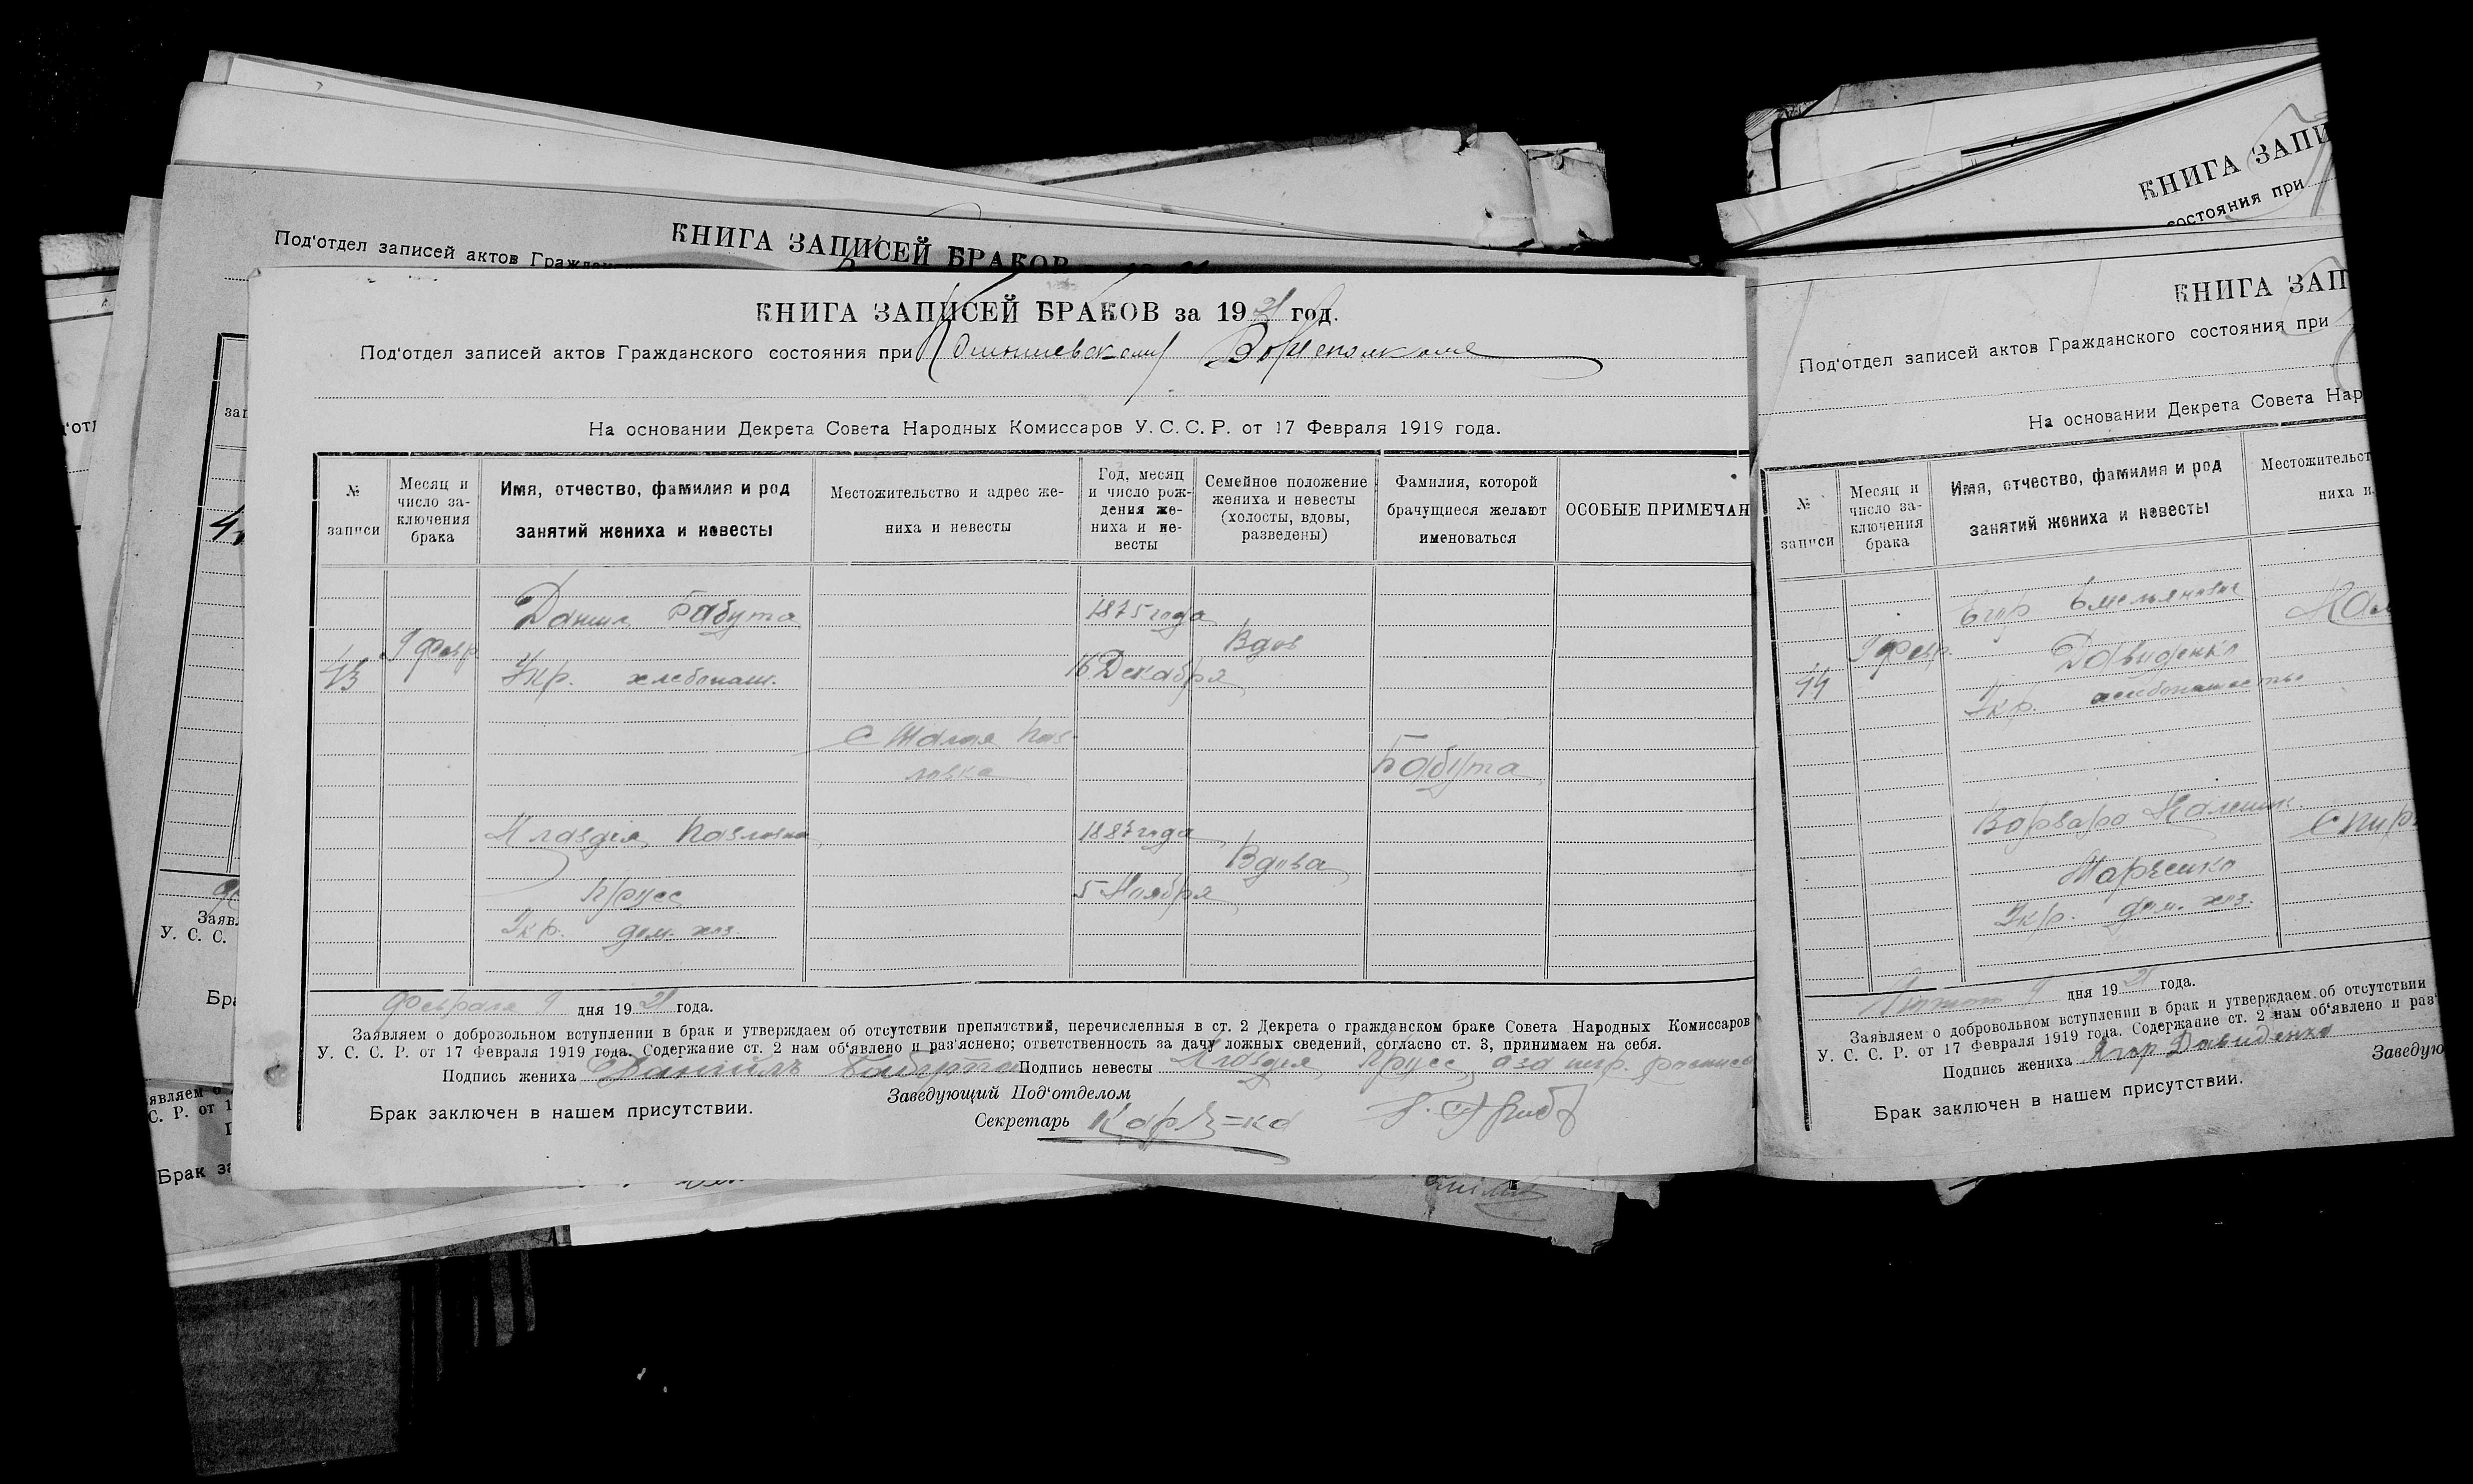 КНИГА ЗАПИСЕЙ БРАКОВ
Под'отдел записей актов
КНИГА ЗАПИСЕЙ БРАКОВ за 1921 год.
Под'отдел записей актов Гражданского состояния при
На основании Декрета Совета Народных Комиссаров У. С. С. Р. от 17 Февраля 1919 года.
№ записи
Месяц и число заключения брака
Имя, отчество, фамилия и род занятий жениха и невесты
Местожительство и адрес жениха и невесты
Год, месяц и число рождения жениха и невесты
Семейное положение жениха и невесты (холосты, вдовы, разведены)
Фамилия, которой брачущиеся желают именоваться
ОСОБЫЕ ПРИМЕЧАН
Данил Бабута 1875 года
13 9 Февр. Вдов
Укр. хлебопаш. 16 Декабря
с Малая Пав-
ловка Бабута
Клавдия Павловна 1883 года
Вдова
Прусс 5 Ноября
Укр. дом. хоз.
Февраля 9 дня 1921 года.
Заявляем о добровольном вступлении в брак и утверждаем об отсутствии препятствий, перечисленныя в ст. 2 Декрета о гражданском браке Совета Народных Комиссаров
У. С. С. Р. от 17 Февраля 1919 года. Содержание ст. 2 нам об'явлено и раз'яснено; ответственность за дачу ложных сведений, согласно ст. 3, принимаем на себя.
Подпись жениха Даниилъ Бабута Подпись невесты Клавдия Прусс
Заведующий Под'отделом
Брак заключен в нашем присутствии.
Секретарь
КНИГА ЗАПИ
состояния при
КНИГА ЗАП
Под'отдел записей актов Гражданского состояния при
На основании Декрета Совета Нар
№ записи
Месяц и число заключения брака
Имя, отчество, фамилия и род занятий жениха и невесты
Местожительст
ниха и
Егор Емельянович
9 Февр. Давиденко
14 Укр. хлебопашество
Варвара
Марченко
Укр. дом. хоз.
9 дня 1921 года.
Заявляем о добровольном вступлении в брак и утверждаем об отсутствии
У. С. С. Р. от 17 Февраля 1919 года. Содержание ст. 2 нам об'явлено и раз'
Подпись жениха Ягор Давиденко
Заведую
Брак заключен в нашем присутствии.